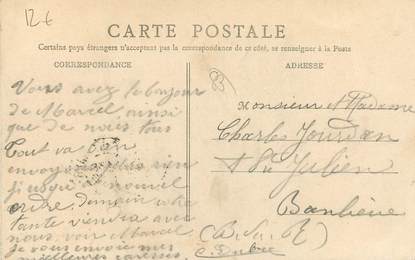 12 €
CARTE POSTALE
Certains pays étrangers n'acceptant pas la correspondance de ce côté, se renseigner à la Poste
CORRESPONDANCE
ADRESSE
Vous avez le bonjour
de Marcel ainsi
que de nous tous
Tout va bien
envoyons plus rien
jusqu'à nouvel
ordre, demain
tante viendra avec
nous voir Marcel
je vous envoie mes
meilleures caresses
83
Monsieur et Madame
Charles Jourdan
St Julien
Banlieue
(B. du R)